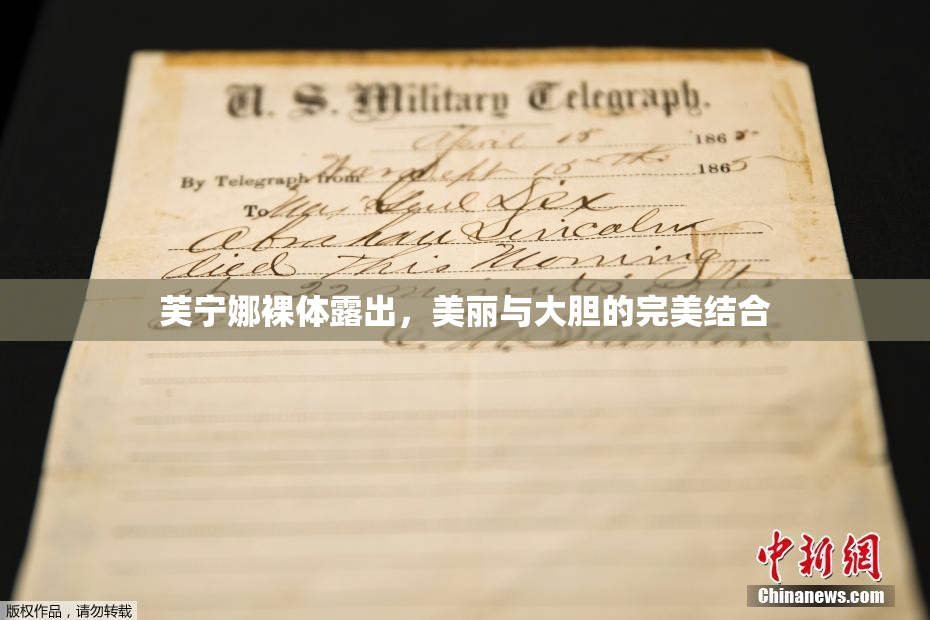 U. S. Military Telegraph.
April 15 1865
By Telegraph from War Dept 15th 1865
To Maj Genl Dix
Abraham Lincoln
died This Morning
at 22 minutes after
芙宁娜裸体露出，美丽与大胆的完美结合
E. M. Stanton
中新网
Chinanews.com
版权作品，请勿转载